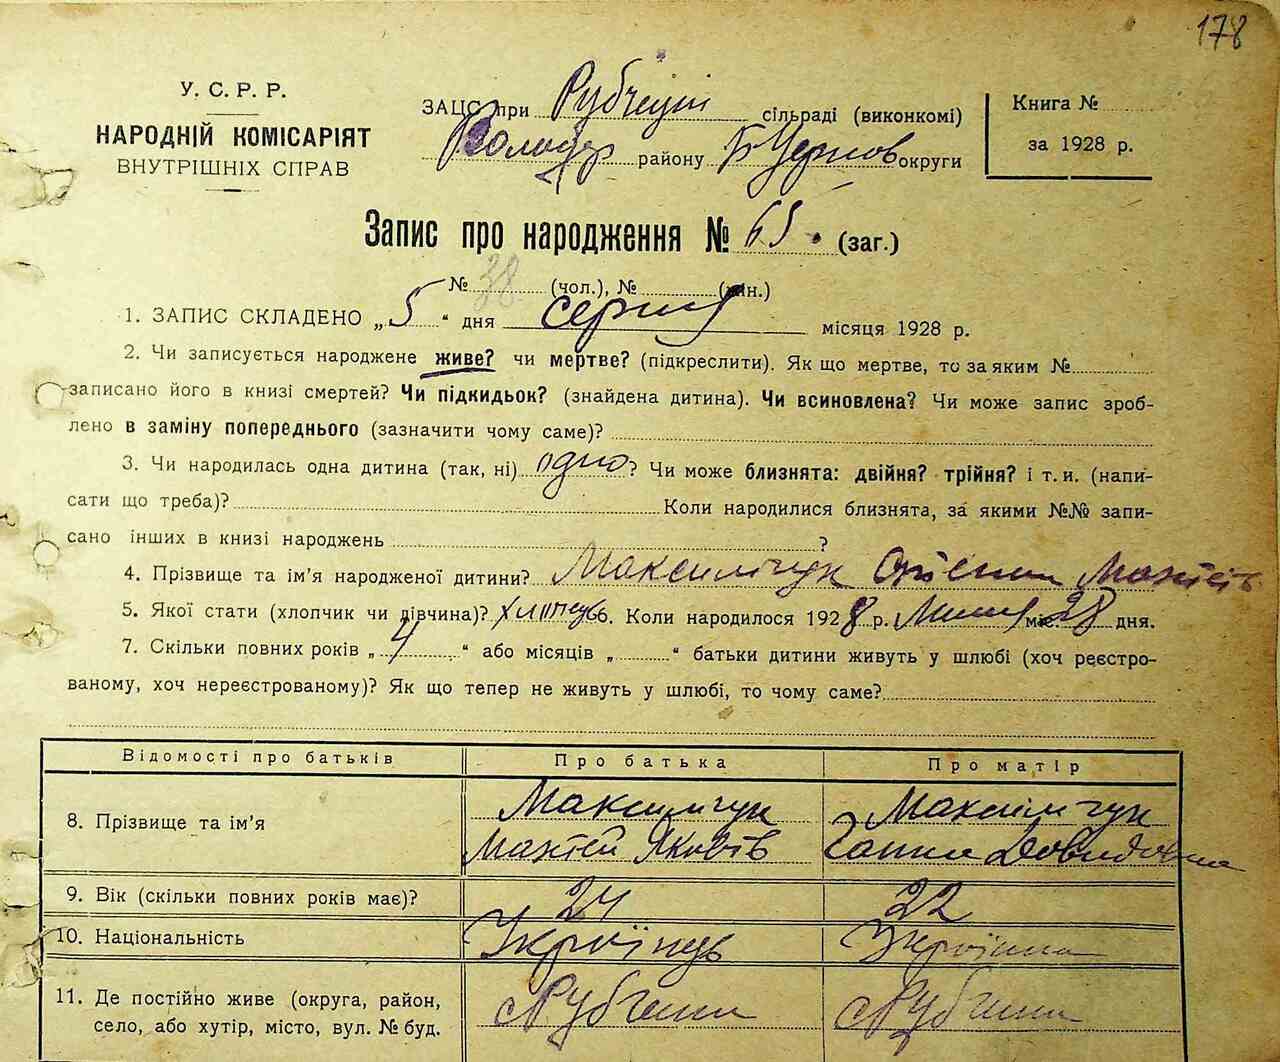 178
У. С. Р. Р.
НАРОДНІЙ КОМІСАРІЯТ
ВНУТРІШНІХ СПРАВ
ЗАЦС при Рубченській сільраді (виконкомі)
Володар району Б Церков округи
Книга №
за 1928 р.
Запис про народження № 65. (заг.)
№ 38 (чол.), № (жін.)
1. ЗАПИС СКЛАДЕНО „ 5 “ дня серпня місяця 1928 р.
2. Чи записується народжене живе? чи мертве? (підкреслити). Як що мертве, то за яким №
записано його в книзі смертей? Чи підкидьок? (знайдена дитина). Чи всиновлена? Чи може запис зроб-
лено в заміну попереднього (зазначити чому саме)?
3. Чи народилась одна дитина (так, ні) одно? Чи може близнята: двійня? трійня? і т. и. (напи-
сати що треба)? Коли народилися близнята, за якими №№ запи-
сано інших в книзі народжень ?
4. Прізвище та ім'я народженої дитини? Максимчук
5. Якої стати (хлопчик чи дівчина)? хлопець 6. Коли народилося 1928 р. Липня міс. 28 дня.
7. Скільки повних років „ 4 “ або місяців „ “ батьки дитини живуть у шлюбі (хоч реєстро-
ваному, хоч нереєстрованому)? Як що тепер не живуть у шлюбі, то чому саме?
Відомості про батьків Про батька Про матір
8. Прізвище та ім'я Максимчук Максимчук
Яковів Ганна Довидовна
9. Вік (скільки повних років має)? 24 22
10. Національність Українець Українка
11. Де постійно живе (округа, район,
село, або хутір, місто, вул. № буд. с Рубченки с Рубченки